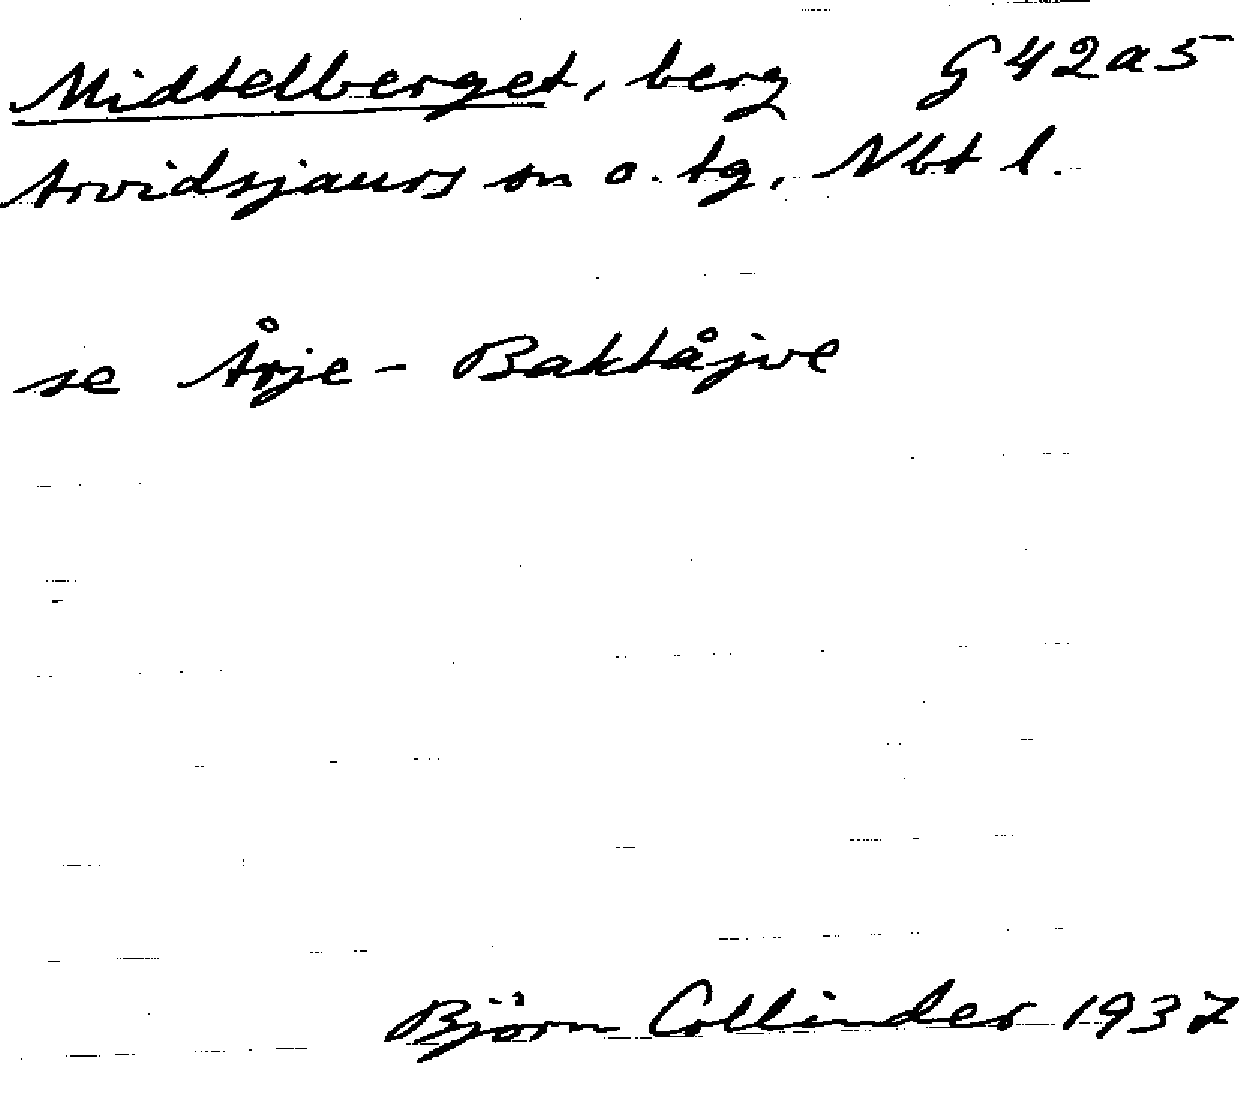 Midtelberget, berg G 42 a 5
Arvidsjaurs sn o. tg, Nbt l.
se Årje - Baktåjve
Björn Collinder 1937